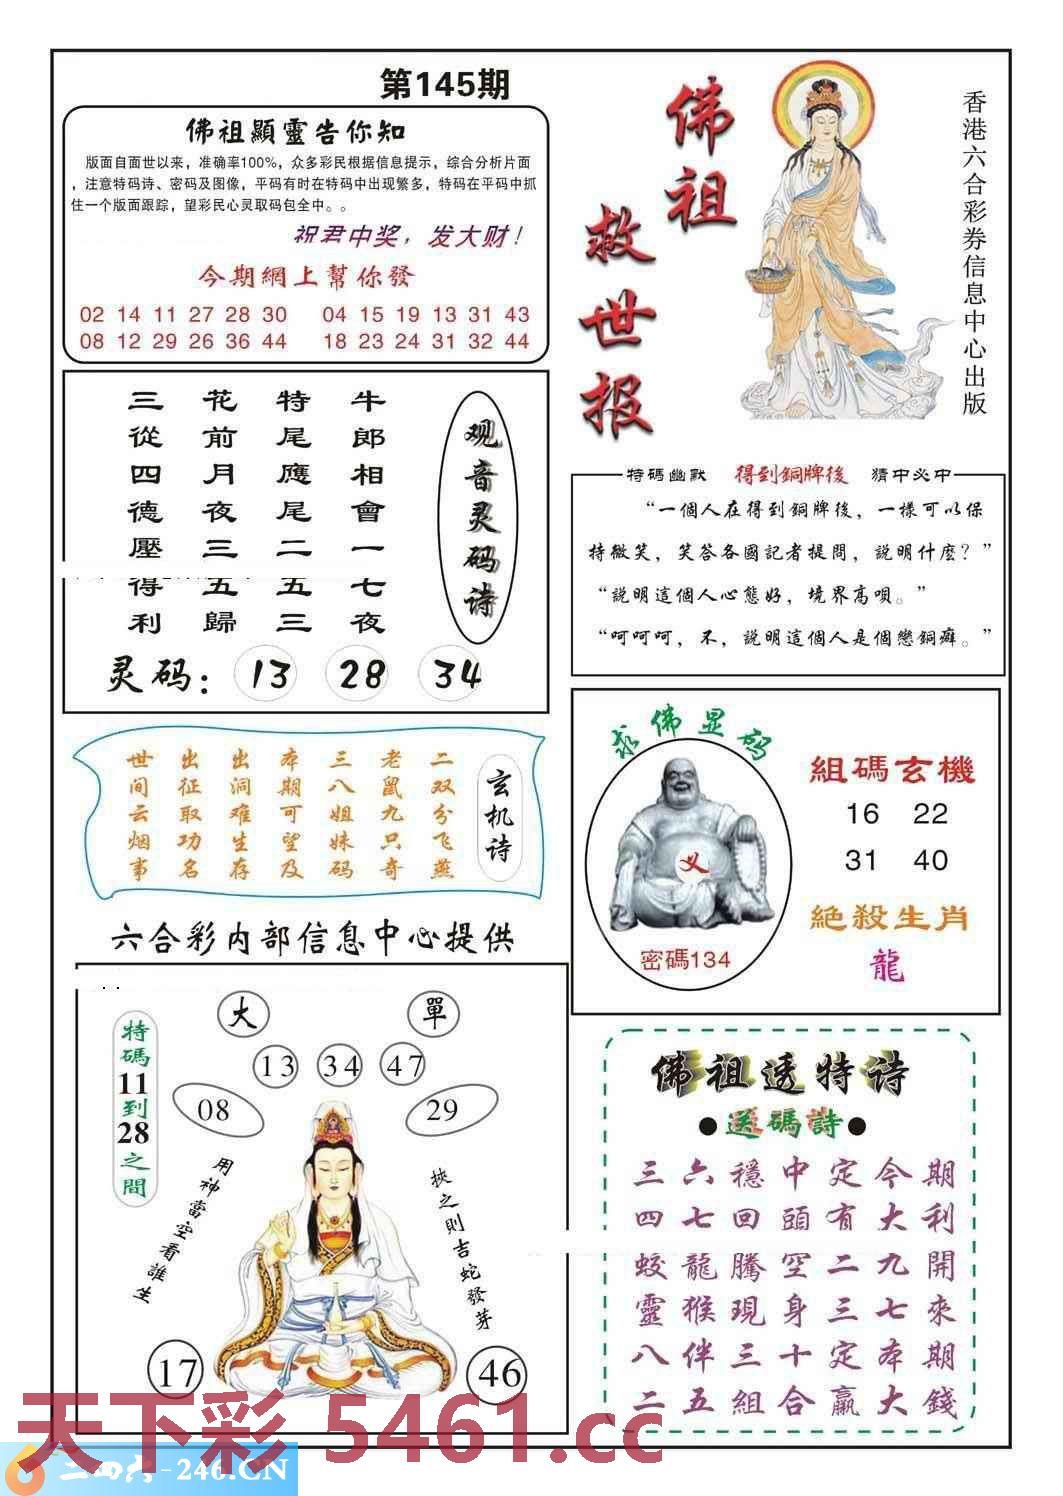 第145期
佛祖顯靈告你知
版面自面世以来，准确率100%，众多彩民根据信息提示，综合分析片面
，注意特码诗、密码及图像，平码有时在特码中出现繁多，特码在平码中抓
住一个版面跟踪，望彩民心灵取码包全中。。
祝君中奖，发大财！
今期網上幫你發
02 14 11 27 28 30 04 15 19 13 31 43
08 12 29 26 36 44 18 23 24 31 32 44
佛祖
救世报
香港六合彩券信息中心出版
观音灵码诗
牛郎相會一七夜
特尾應尾二五三
花前月夜三五歸
三從四德壓得利
灵码：13 28 34
特碼幽默 得到銅牌後 猜中必中
“一個人在得到銅牌後，一樣可以保
持微笑，笑答各國記者提問，説明什麼？”
“説明這個人心態好，境界高唄。”
“呵呵呵，不，説明這個人是個戀銅癖。”
玄机诗
二双分飞燕
老鼠九只奇
三八姐妹码
本期可望及
出洞难生存
出征取功名
世间云烟事
求佛显码
义
密碼134
組碼玄機
16 22
31 40
絕殺生肖
龍
六合彩内部信息中心提供
特碼11到28之間
大 單
13 34 47
08 29
用神當空看誰生
挾之則吉蛇發芽
17 46
佛祖透特诗
●送碼詩●
三六穩中定今期
四七回頭有大利
蛟龍騰空二九開
靈猴現身三七來
八伴三十定本期
二五組合贏大錢
天下彩 5461.cc
二四六-246.CN